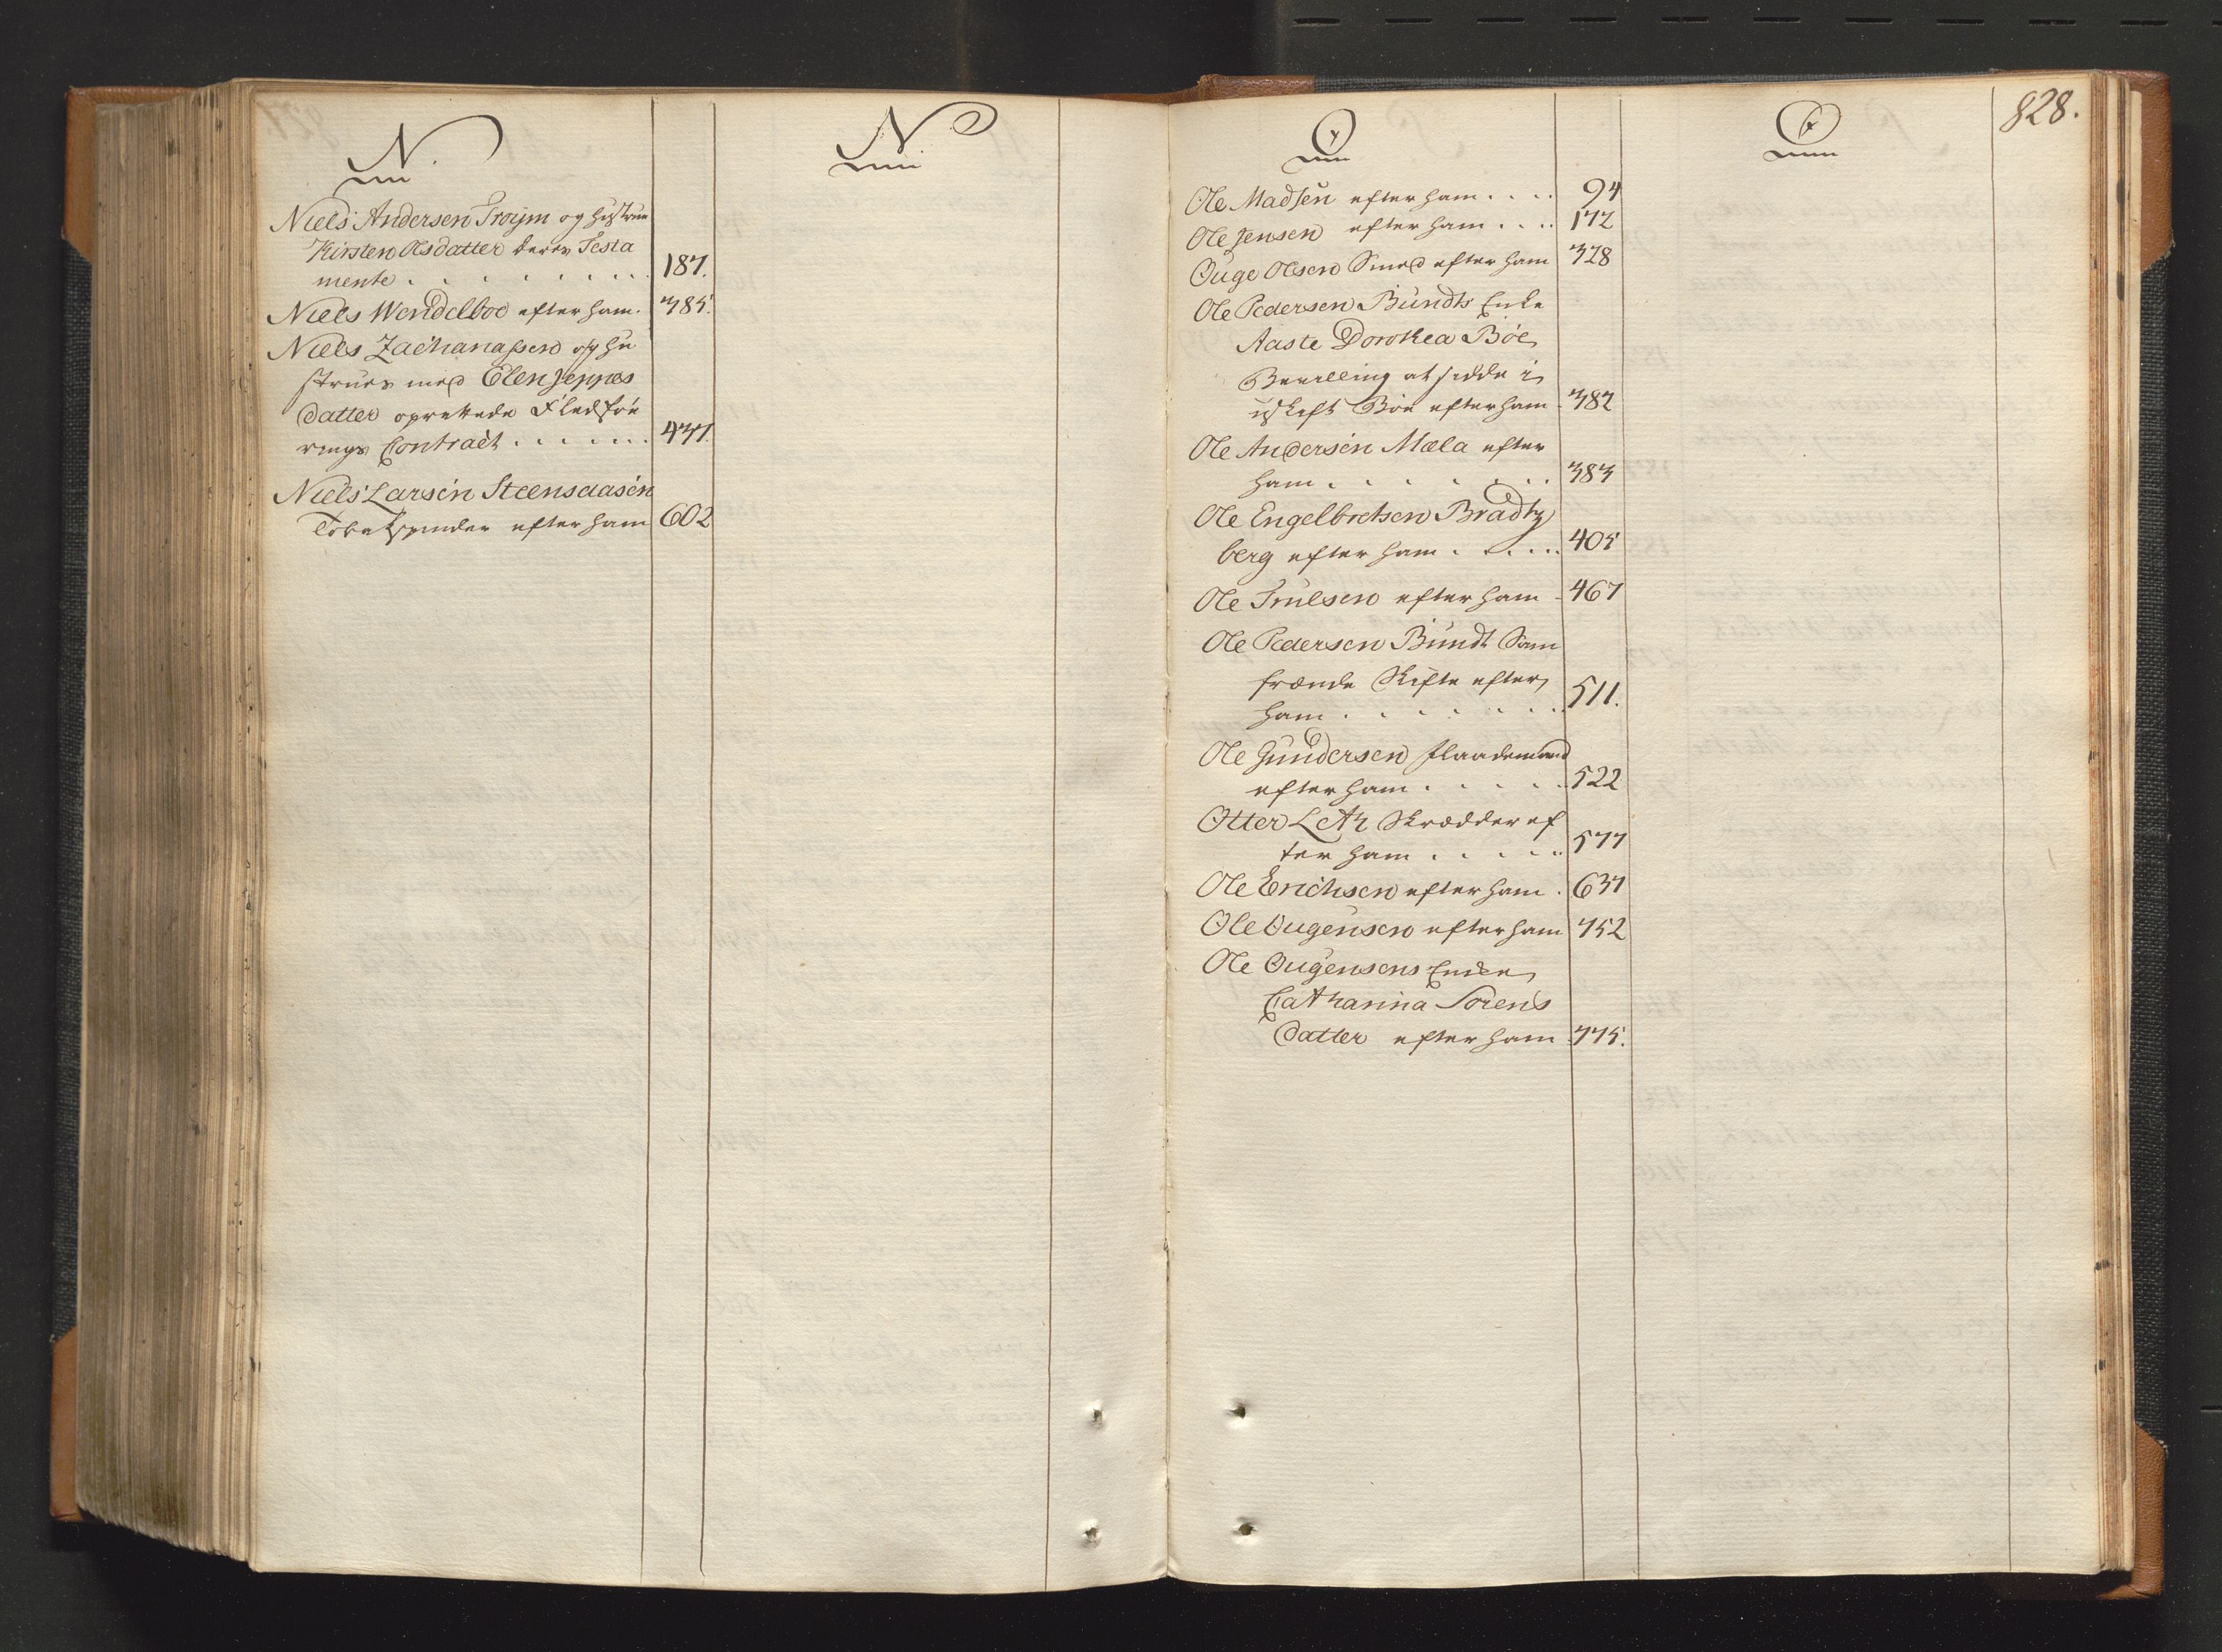 N.
Niels Andersen Troijm og Hustrue
Kirsten Olsdatter deres Testa
mente . . . . . . . . 187.
Niels Wendelboe efter ham. 385.
Niels Zachariassen og Hu
strues med Elen Jeppes
datter oprettede Fledføe
rings Contract . . . . . . 437.
Niels Larsen Steensaasen
Tobakspinder efter ham 602
N
O
Ole Madsen efter ham . . . . 94
Ole Jensen efter ham . . . . 172
Ouge Olsen Smed efter ham 328
Ole Pedersen Bundts Enke
Aaste Dorothea Böe
Bevilling at sidde i
uskift Boe efter ham 382
Ole Andersen Mæla efter
ham . . . . . . . 383
Ole Engelbretsen Bradtz
berg efter ham . . . . . 405
Ole Trulsen efter ham - 467
Ole Pedersen Bundt Sam
frænde Skifte efter
ham . . . . . . . 511.
Ole Gundersen Flaademand
efter ham . . . . . 522
Otter Leth Skrædder ef
ter ham . . . . . 577
Ole Erichsen efter ham . 637
Ole Ougensen efter ham 752
Ole Ougensens Enke
Catharina Sörens
datter efter ham 775.
O
828.